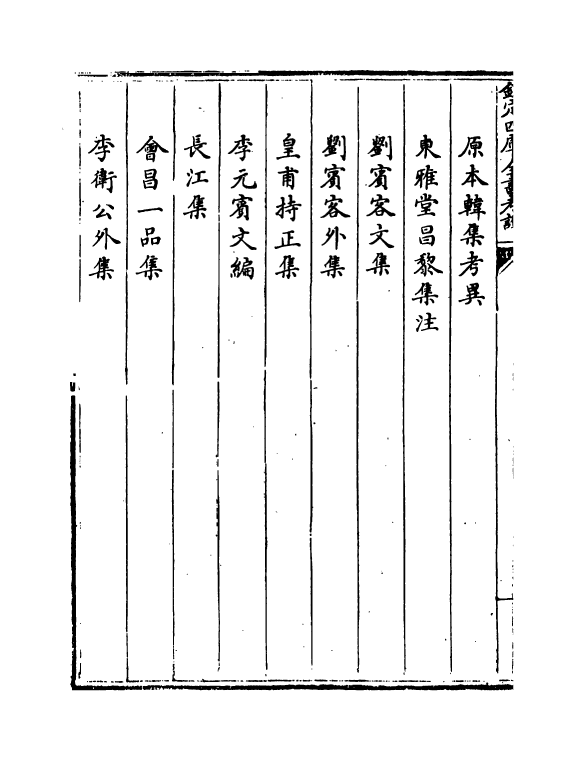 欽定四庫全書考證
原本韓集考異
東雅堂昌黎集注
劉賓客文集
劉賓客外集
皇甫持正集
李元賓文編
長江集
會昌一品集
李衛公外集